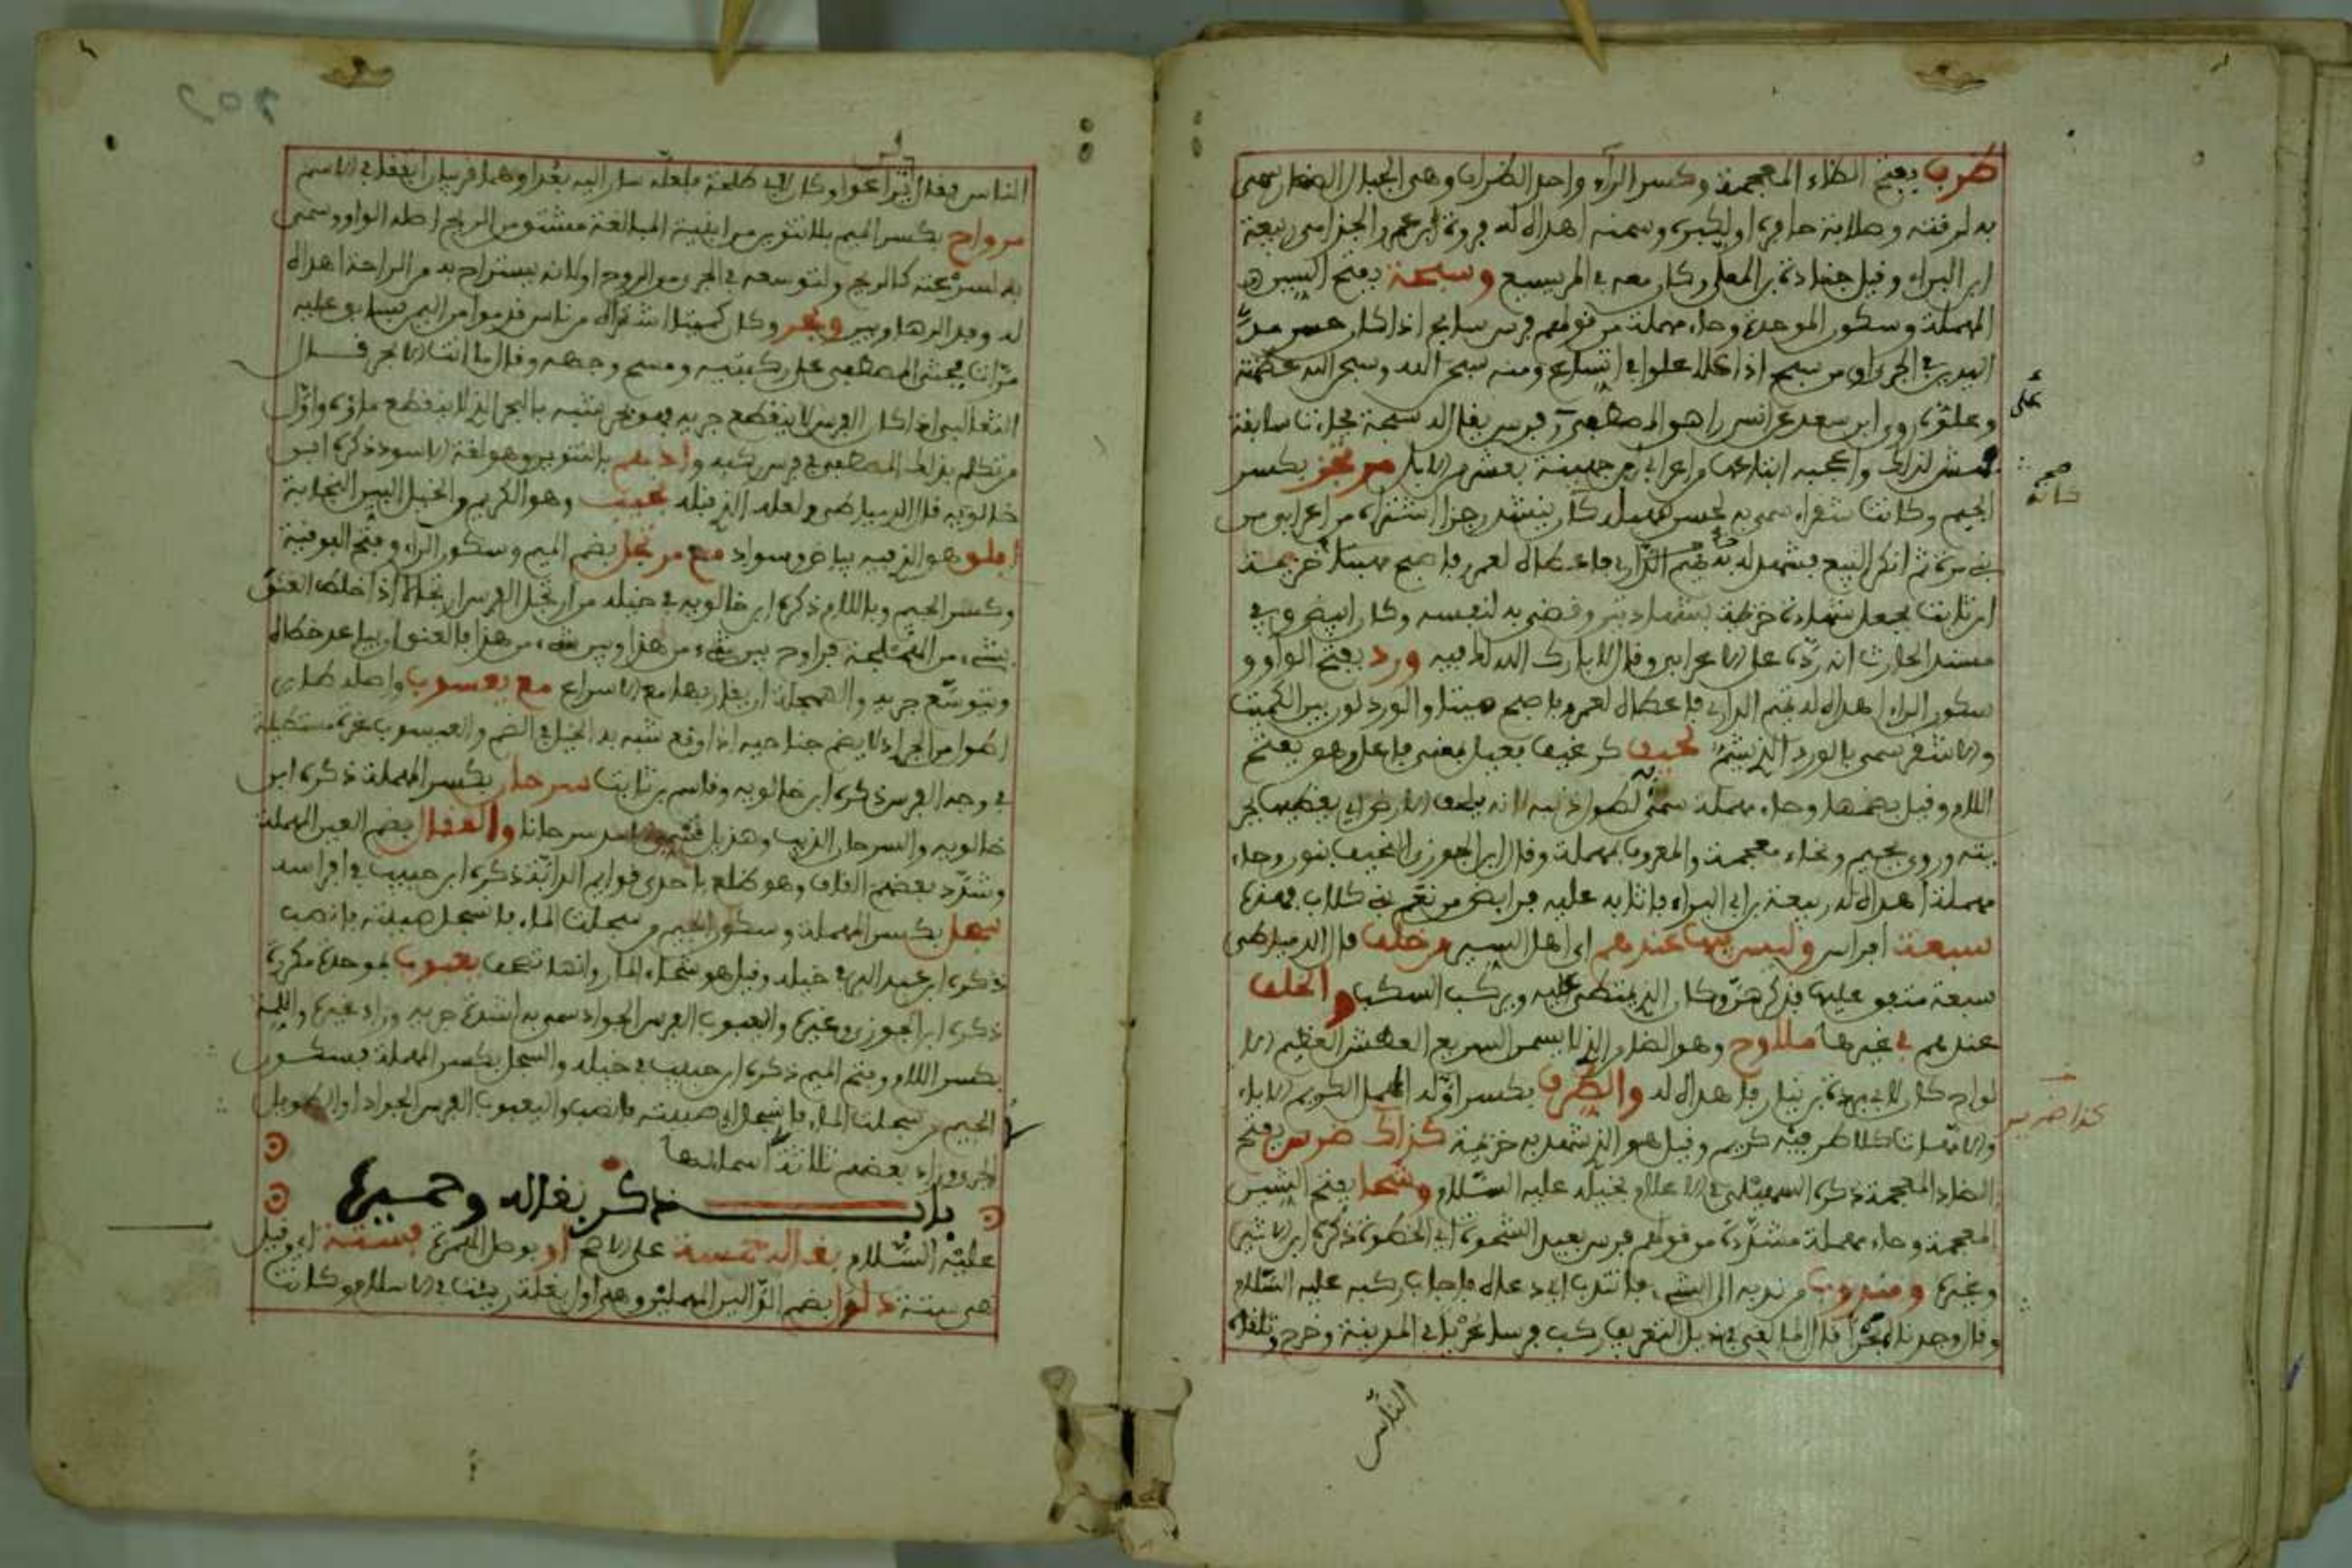 ظرب بفتح الظاء المعجمة وكسر الراء واحد الظراب وهي الجبال الصغار سمي
به لرفته وصلابة حافره او لكبره وسمنه اهداه له فروة ابن عمرو الجذامي ربيعة
ابن البراء وقيل جنادة بن المعلى وكان معه في المريسيع وسبحة بفتح السين
المهملة وسكون الموحدة وحاء مهملة من قولهم فرس سابح اذا كان حسن مد
اليدين في الجري او من سبح اذا علا علوا في اتساع ومنه سبح الله وسبح الله عظمة
وعلوه روى ابن سعد عن انس راهن المصطفى فرس يقال له سبحة فجاءت سابقة
فهش لذلك واعجبه ابتاعها من اعرابي من جهينة بعشر من الابل مرتجز بكسر
الجيم وكانت شهباء سمي به لحسن صهيله كان ينشد رجزا اشتراه من اعرابي من
بني مرة ثم انكر البيع فشهد له به خزيمة
ابن ثابت فجعل شهادة خزيمة بشهادتين وقضى به لنفسه وكان ابيض وفي
مسند الحارث انه رده على الاعرابي وقال لا بارك الله لك فيه ورد بفتح الواو و
سكون الراء اهداه له تميم الداري فاعطاه لعمر والورد لون بين الكميت
والاشقر سمي بالورد الذي يشم لحيف كرغيف فعيل بمعنى فاعل وهو بفتح
اللام وقيل بضمها وحاء مهملة سمي لطول ذنبه لانه يلحف الارض اي يغطيها
وروي بجيم وبخاء معجمة والمعروف بمهملة وقال ابن الجوزي النحيف بنون وحاء
مهملة اهداه له ربيعة بن ابي البراء فاثابه عليه فرائض من نعم بني كلاب فهذه
سبعة افراس وليس فيها عندهم اي اهل السير من خلف قال الدمياطي
سبعة متفق عليها وكان الذي يمتطي عليه ويركب السكب والخلف
عندهم في غيرها ملاوح وهو الضامر الذي لا يسمن السريع العطش العظيم الا
لواح كان لابي بردة بن نيار فاهداه له والطرف بكسر اوله الكريم الاباء
والامهات كلا طرفيه كريم وقيل هو الذي شهد به خزيمة كذاك ضرس بفتح
الضاد المعجمة ذكره السهيلي في الاعلام بخيله عليه السلام وشحا بفتح الشين
المعجمة وحاء مهملة مشددة من قولهم فرس بعيد الشحوة اي الخطوة ذكره ابن الاثير
وغيره ومندوب من ندبه الى الشيء فانتدب اي دعاه فاجاب ركبه عليه السلام
وقال وجدناه لبحرا ركب فرسا في المدينة وخرج وتلقاه
الناس
على
صح
كذا ضريس
الناس فقال لن تراعوا وكان لابي طلحة فلعله صار اليه بعد او هما فرسان اتفقا في الاسم
مرواح بكسر الميم بلا تنوين من ابنية المبالغة مشتق من الريح اصله الواو وسمي
به لسرعته كالريح ولتوسعه في الجري من الروح او لانه يستراح به من الراحة اهداه
له وفد الرهاويين وبحر وكان كميتا اشتراه من ناس قدموا من اليمن فسابق عليه
مرات فجثى المصطفى على ركبتيه ومسح وجهه وقال ما انت الا بحر قال
الثعالبي اذا كان الفرس لا ينقطع جريه فهو بحر شبه بالبحر الذي لا ينقطع ماؤه واول
من تكلم بذلك المصطفى في فرس ركبه وادهم بالتنوين وهو لغة الاسود ذكره ابن
خالويه قال الدمياطي ولعله الذي قبله نجيب وهو الكريم من الخيل البين النجابة
ابلق هو الذي فيه بياض وسواد مع مرتجل بضم الميم وسكون الراء وفتح الفوقية
وكسر الجيم وباللام ذكره ابن خالويه في خيله من ارتجل الفرس ارتجالا اذا خلط العنق
بشيء من الهملجة فراوح بين شيء من هذا وبين شيء من هذا فالعنق ان يباعد خطاه
ويتوسع جريه والهملجة ان يقاربها مع الاسراع مع يعسوب واصله طائر
اطول من الجراد لا يضم جناحيه اذا وقع شبه به الخيل في الضمر واليعسوب غرة مستطيلة
في وجه الفرس ذكره ابن خالويه وقاسم بن ثابت سرحان بكسر المهملة ذكره ابن
خالويه والسرحان الذئب وهذيل تسمي الاسد سرحانا والعقال بضم العين المهملة
وشدد بعضهم القاف وهو ظلع ياخذ في قوائم الدابة ذكره ابن حبيب في افراسه
سجل بكسر المهملة وسكون الجيم من سجلت الماء فانسجل صببته فانصب
ذكره ابن عبد البر في خيله وقيل هو شحاء يعبوب بموحدة مكررة
ذكره ابن الجوزي وغيره واليعبوب الفرس الجواد سمي به لشدة جريه وزاد غيره واللمة
بكسر اللام وفتح الميم ذكره ابن حبيب في خيله والسجل بكسر المهملة فسكون
الجيم من سجلت الماء فانسجل اي صببته فانصب واليعبوب الفرس الجواد او الطويل
الجري وزاد بعضهم ثلاثة اسمائها
باب ذكر بغاله وحميره
عليه السلام بغاله خمسة على الاصح او بوصل الهمزة فستة اي وقيل
هي ستة دلدل بضم الدالين المهملتين وهي اول بغلة ريئت في الاسلام وكانت